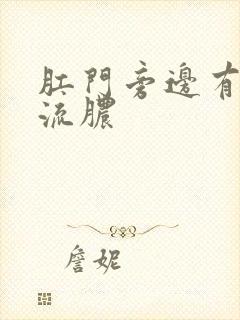 肛門旁邊有
流膿
詹妮